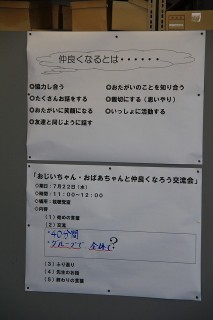 仲良くなるとは・・・・・・
◎協力し合う ◎おたがいのことを知り合う
◎たくさんお話をする ◎親切にする（思いやり）
◎おたがいに笑顔になる ◎いっしょに活動する
◎友達と同じように話す
「おじいちゃん・おばあちゃんと仲良くなろう交流会」
◇期日：７月２２日（水）
◇時間：１１：００～１２：００
◇場所：
◇内容
（１）始めの言葉
（２）交流
・４０分間
・グループで 全体で？
（３）ふり返り
（４）先生のお話
（５）終わりの言葉